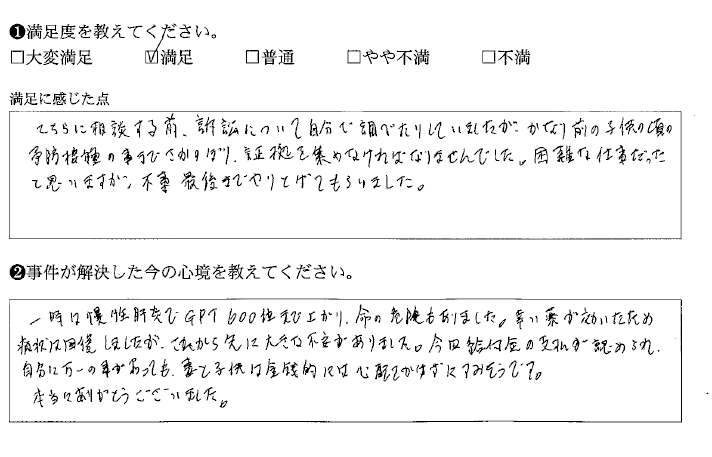 ❶満足度を教えてください。
□大変満足 ☑満足 □普通 □やや不満 □不満
満足に感じた点
こちらに相談する前、訴訟について自分で調べたりしていましたが、かなり前の子供の頃の
予防接種の事までさかのぼり、証拠を集めなければなりませんでした。困難な仕事だった
と思いますが、不事最後までやりとげてもらいました。
❷事件が解決した今の心境を教えてください。
一時は慢性肝炎でGPT 600位まで上がり、命の危険もありました。幸い薬が効いたため
病状は回復しましたが、これから先に大きな不安がありました。今回給付金の支払が認められ、
自分に万一の事があっても、妻と子供は金銭的には心配をかけずにすみそうです。
本当にありがとうございました。